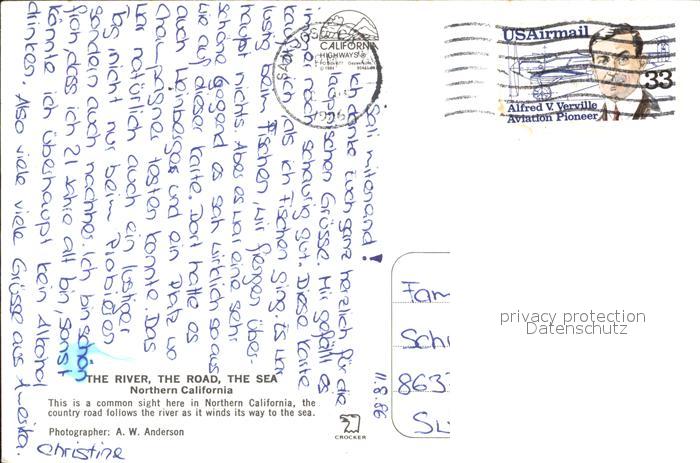 Sali mitenand!
Ich danke Euch ganz herzlich für die
Grüsse. Mir gefällt es
immer noch schaurig gut. Diese Karte
kaufte ich als ich Fischen ging. Es war
lustig beim Fischen, wir fingen über-
haupt nichts. Aber es war eine sehr
schöne Gegend es sah wirklich so aus
wie auf dieser Karte. Dort hatte es
auch Weinberge und ein Platz wo
Champagner testen konnte. Das
war natürlich auch ein lustiger
Tag nicht nur beim Probieren
sondern auch nachher. Ich bin schon
froh, dass ich 21 Jahre alt bin, sonst
könnte ich überhaupt kein Alkohol
trinken. Also viele viele Grüsse aus Amerika.
Christine
11.8.86
CALIFORN
HIGHWAYS
USAirmail
33
Alfred V. Verville
Aviation Pioneer
Fam
Sch
863
privacy protection
Datenschutz
THE RIVER, THE ROAD, THE SEA
Northern California
This is a common sight here in Northern California, the
country road follows the river as it winds its way to the sea.
Photographer: A. W. Anderson
CROCKER